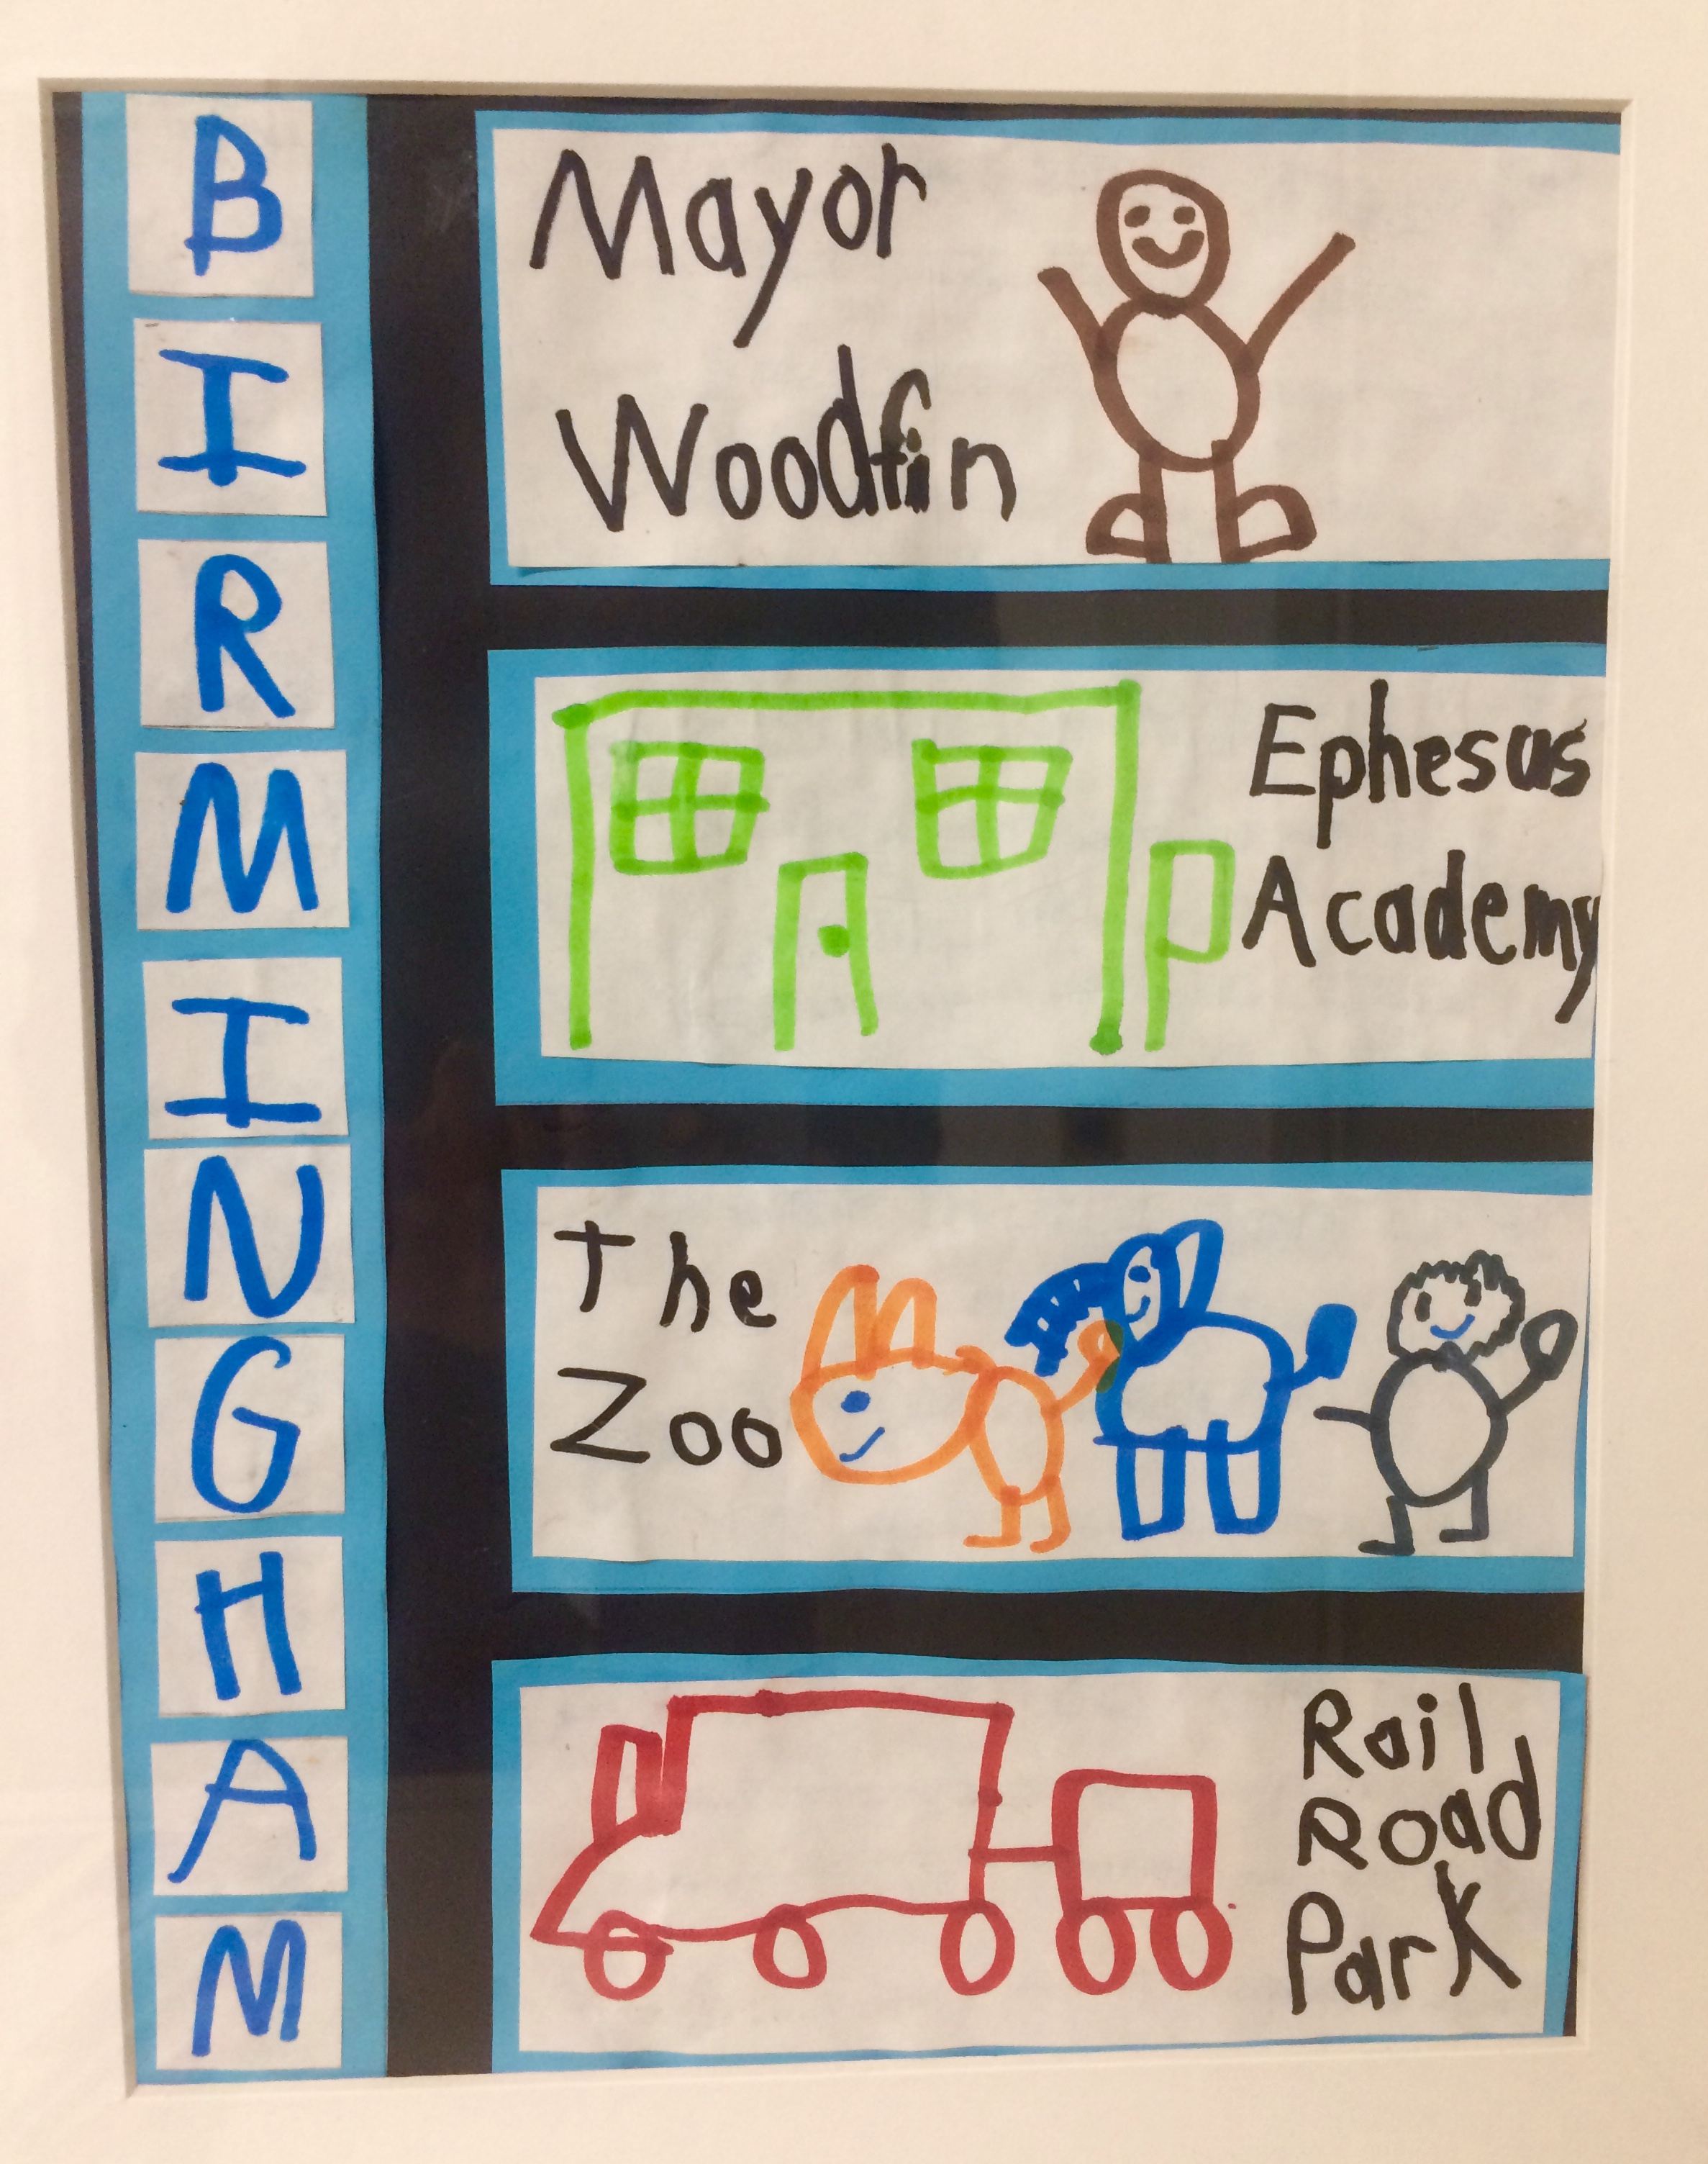 B
I
R
M
I
N
G
H
A
M
Mayor
Woodfin
Ephesus
Academy
The
Zoo
Rail
Road
Park